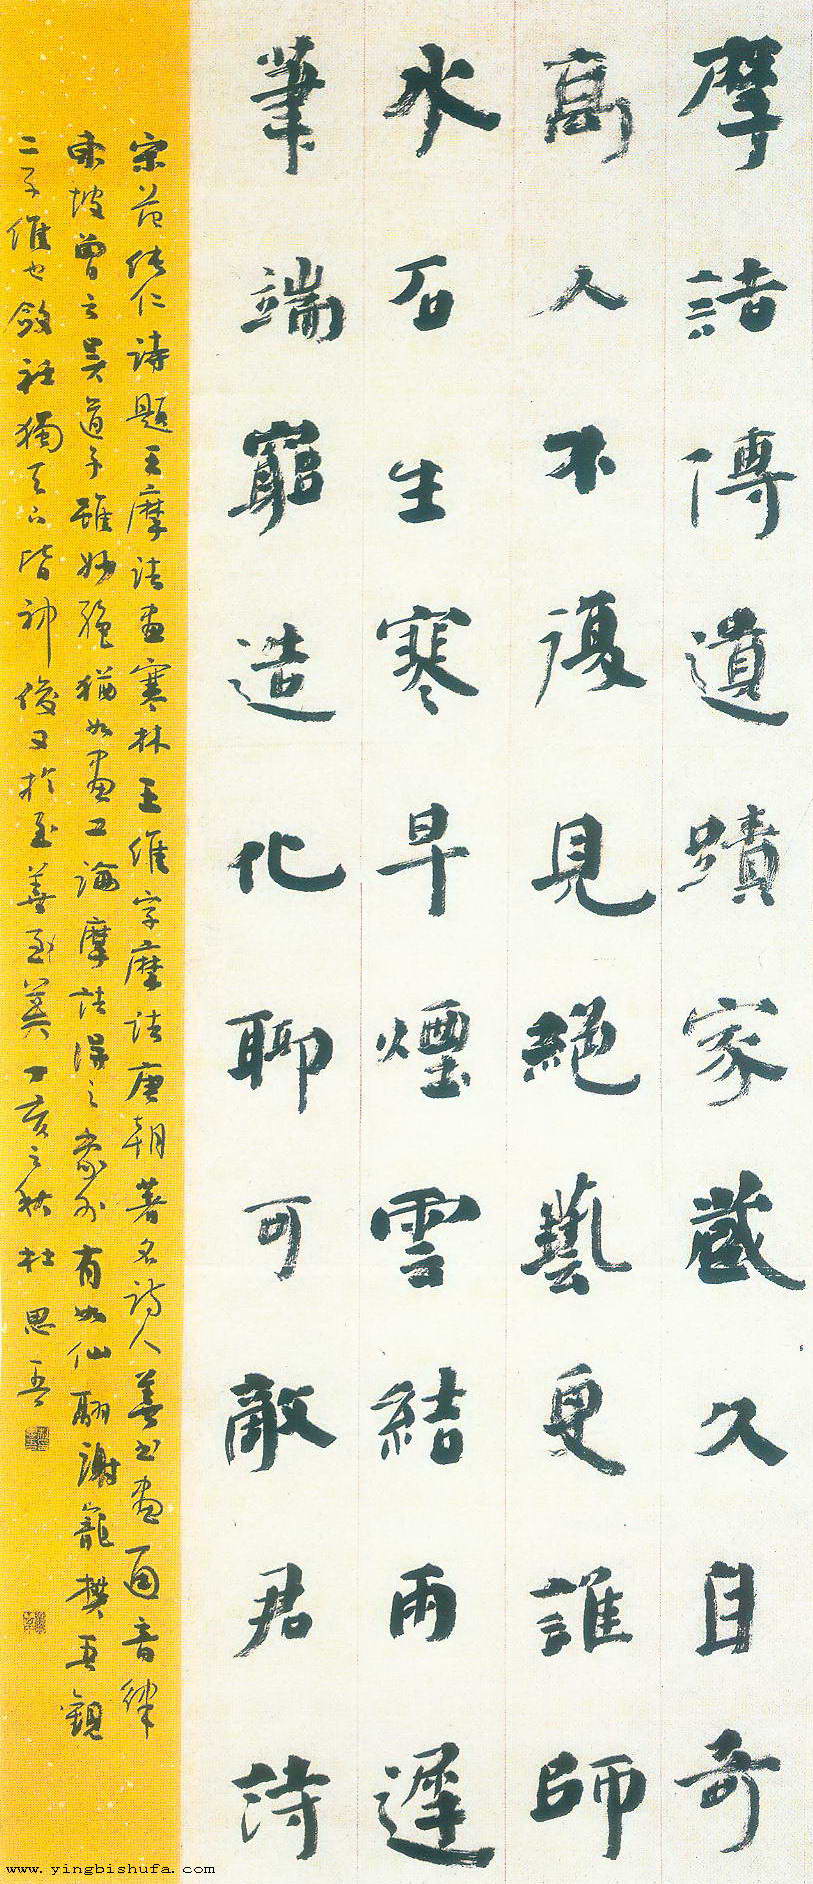 摩詰傳遺蹟家藏久自奇
高人不復見絕藝更誰師
水石生寒早煙雲結雨遲
筆端窮造化聊可敵君詩
宋范純仁詩題王摩詰畫寒林王維字摩詰唐朝著名詩人善书畫通音律
東坡曾云吳道子雖妙絕猶如畫工論摩詰得之象外有如仙翮謝籠樊吾觀
二子維也斂衽獨天下皆神俊又於至善至美丁亥之秋杜思
www.yingbishufa.com